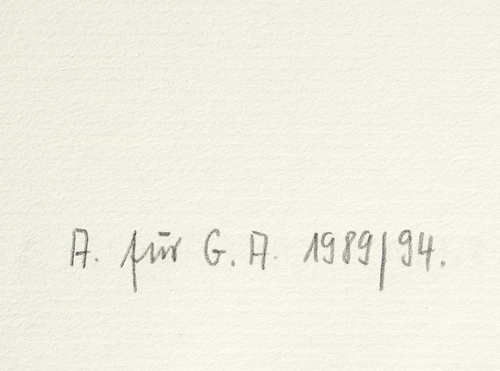 A. für G. A. 1989/94.